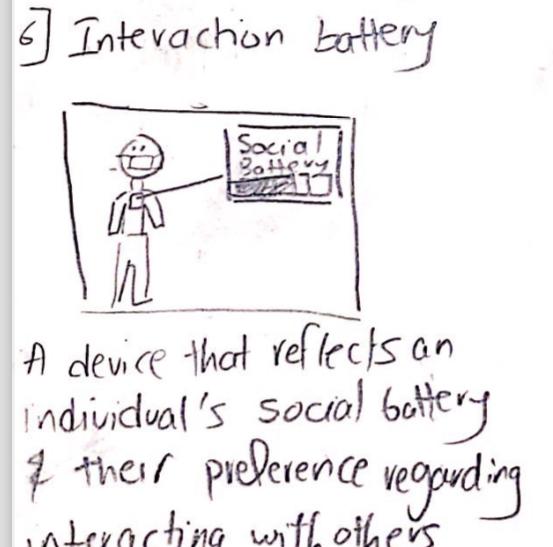 6] Interaction battery
Social
Battery
A device that reflects an
individual's social battery
& their preference regarding
interacting with others